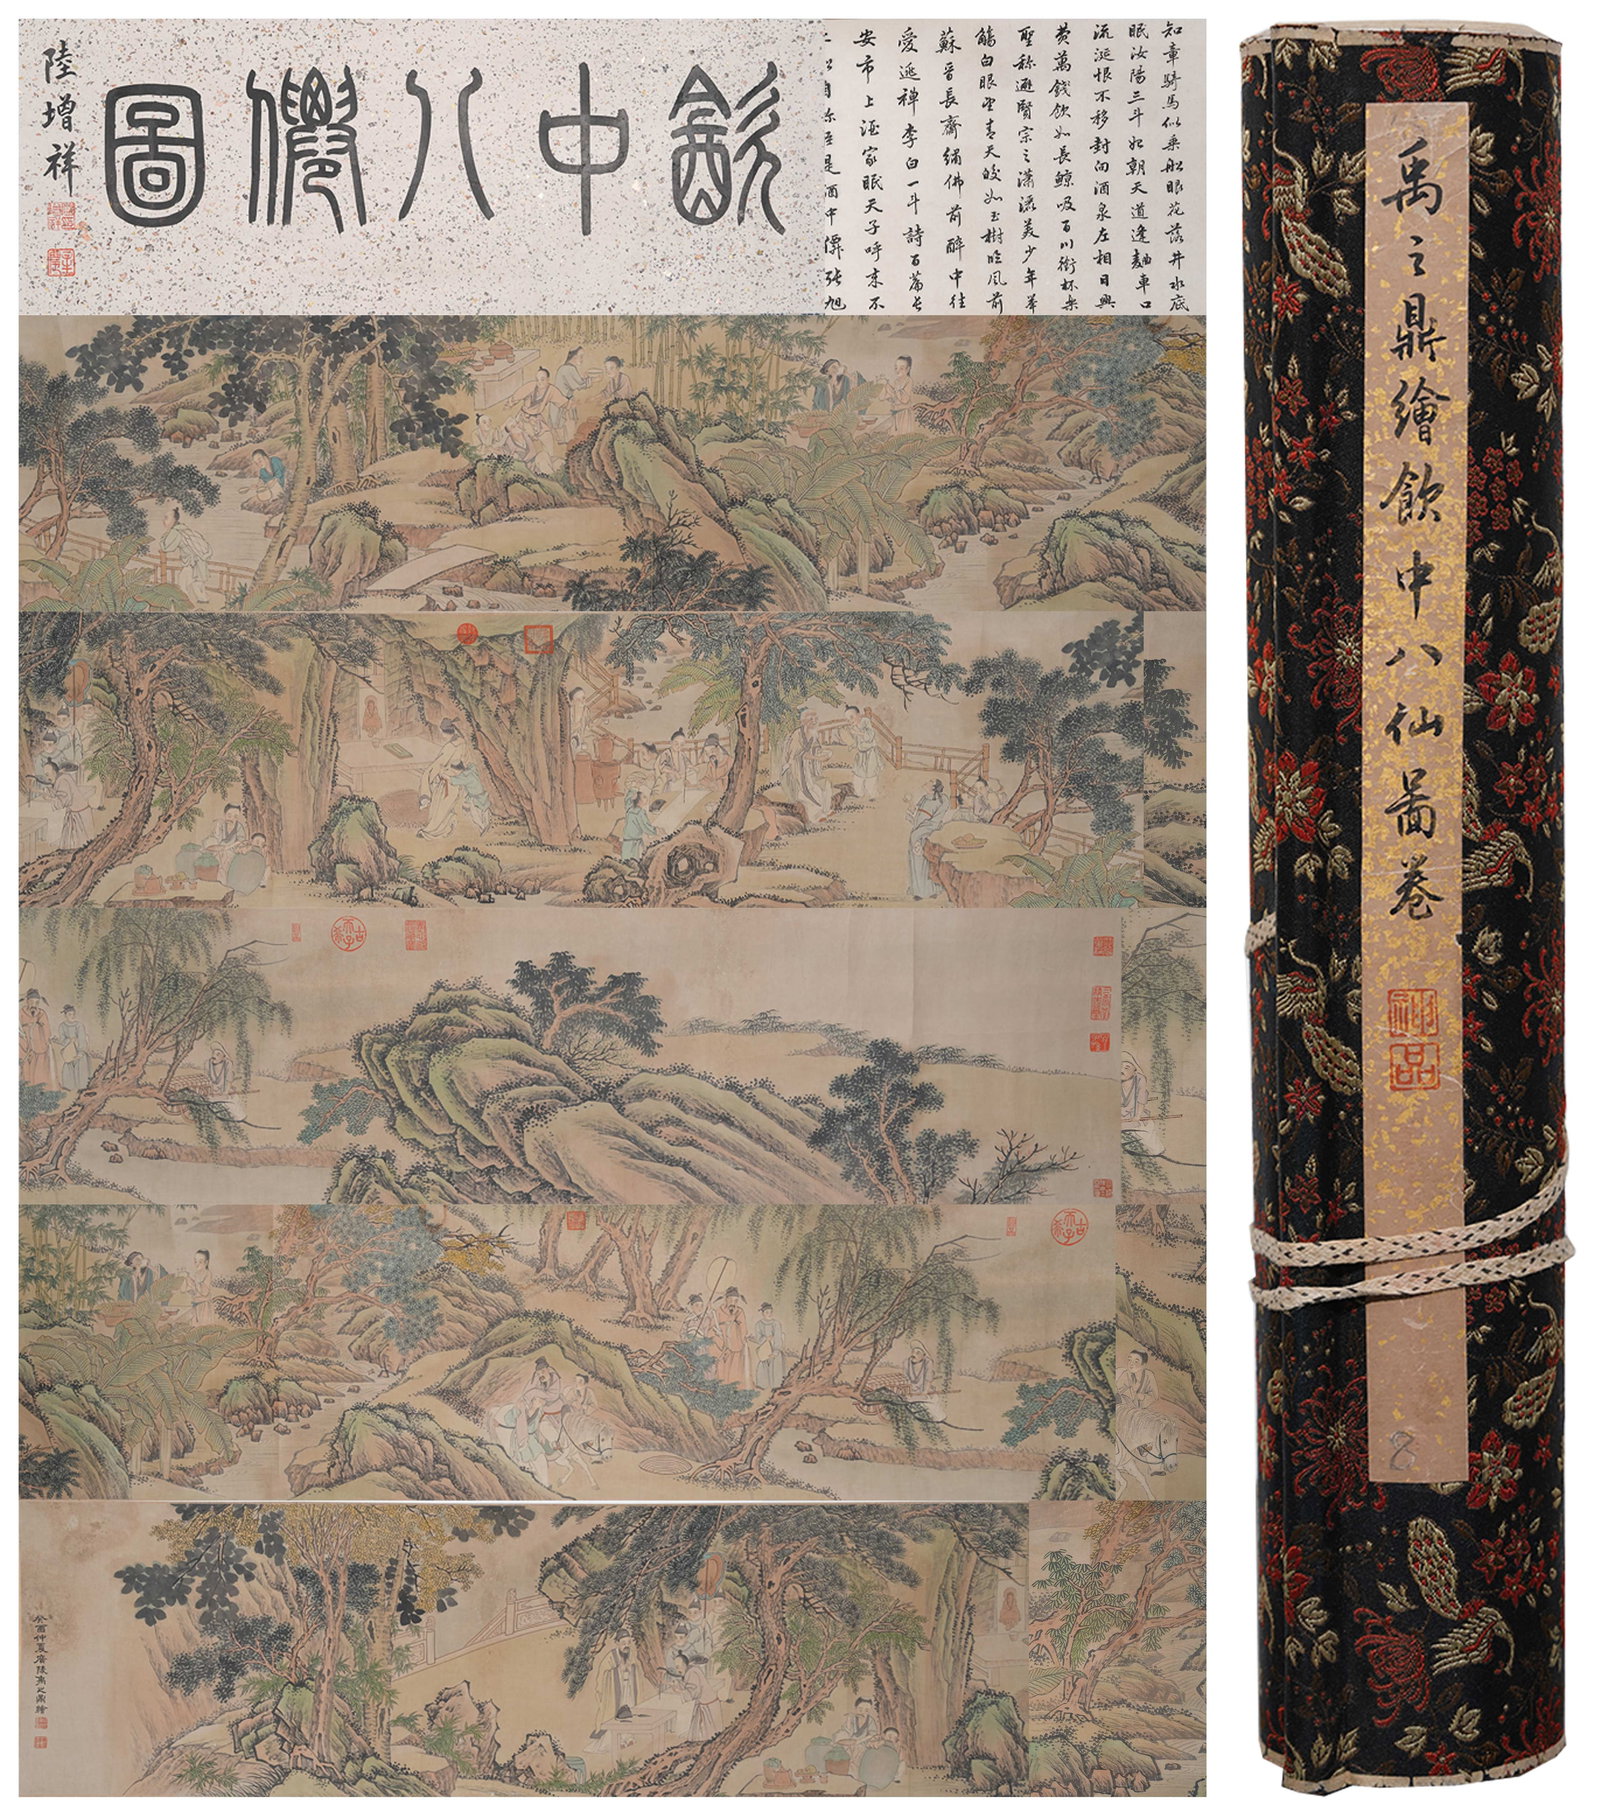 知章騎馬似乘船眼花落井水底
眠汝陽三斗始朝天道逢麯車口
流涎恨不移封向酒泉左相日興
費萬錢飲如長鯨吸百川銜杯樂
聖稱避賢宗之瀟灑美少年舉
觴白眼望青天皎如玉樹臨風前
蘇晉長齋繡佛前醉中往
愛逃禪李白一斗詩百篇長
安市上酒家眠天子呼來不
自稱臣是酒中僊張旭
飲中八僊圖
陸增祥
古希天子
古希天子
癸酉仲夏廣陵禹之鼎繪
禹之鼎繪飲中八仙圖卷
神品